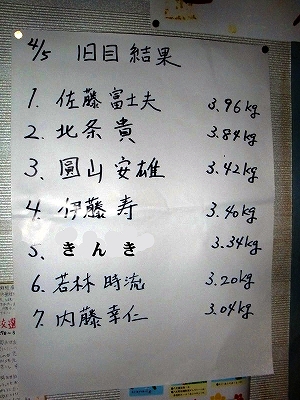 4/5 1日目 結果
1. 佐藤 富士夫 3.96kg
2. 北条 貴 3.84kg
3. 圓山 安雄 3.42kg
4. 伊藤 寿 3.40kg
5. きんき 3.34kg
6. 若林 時流 3.20kg
7. 内藤 幸仁 3.04kg